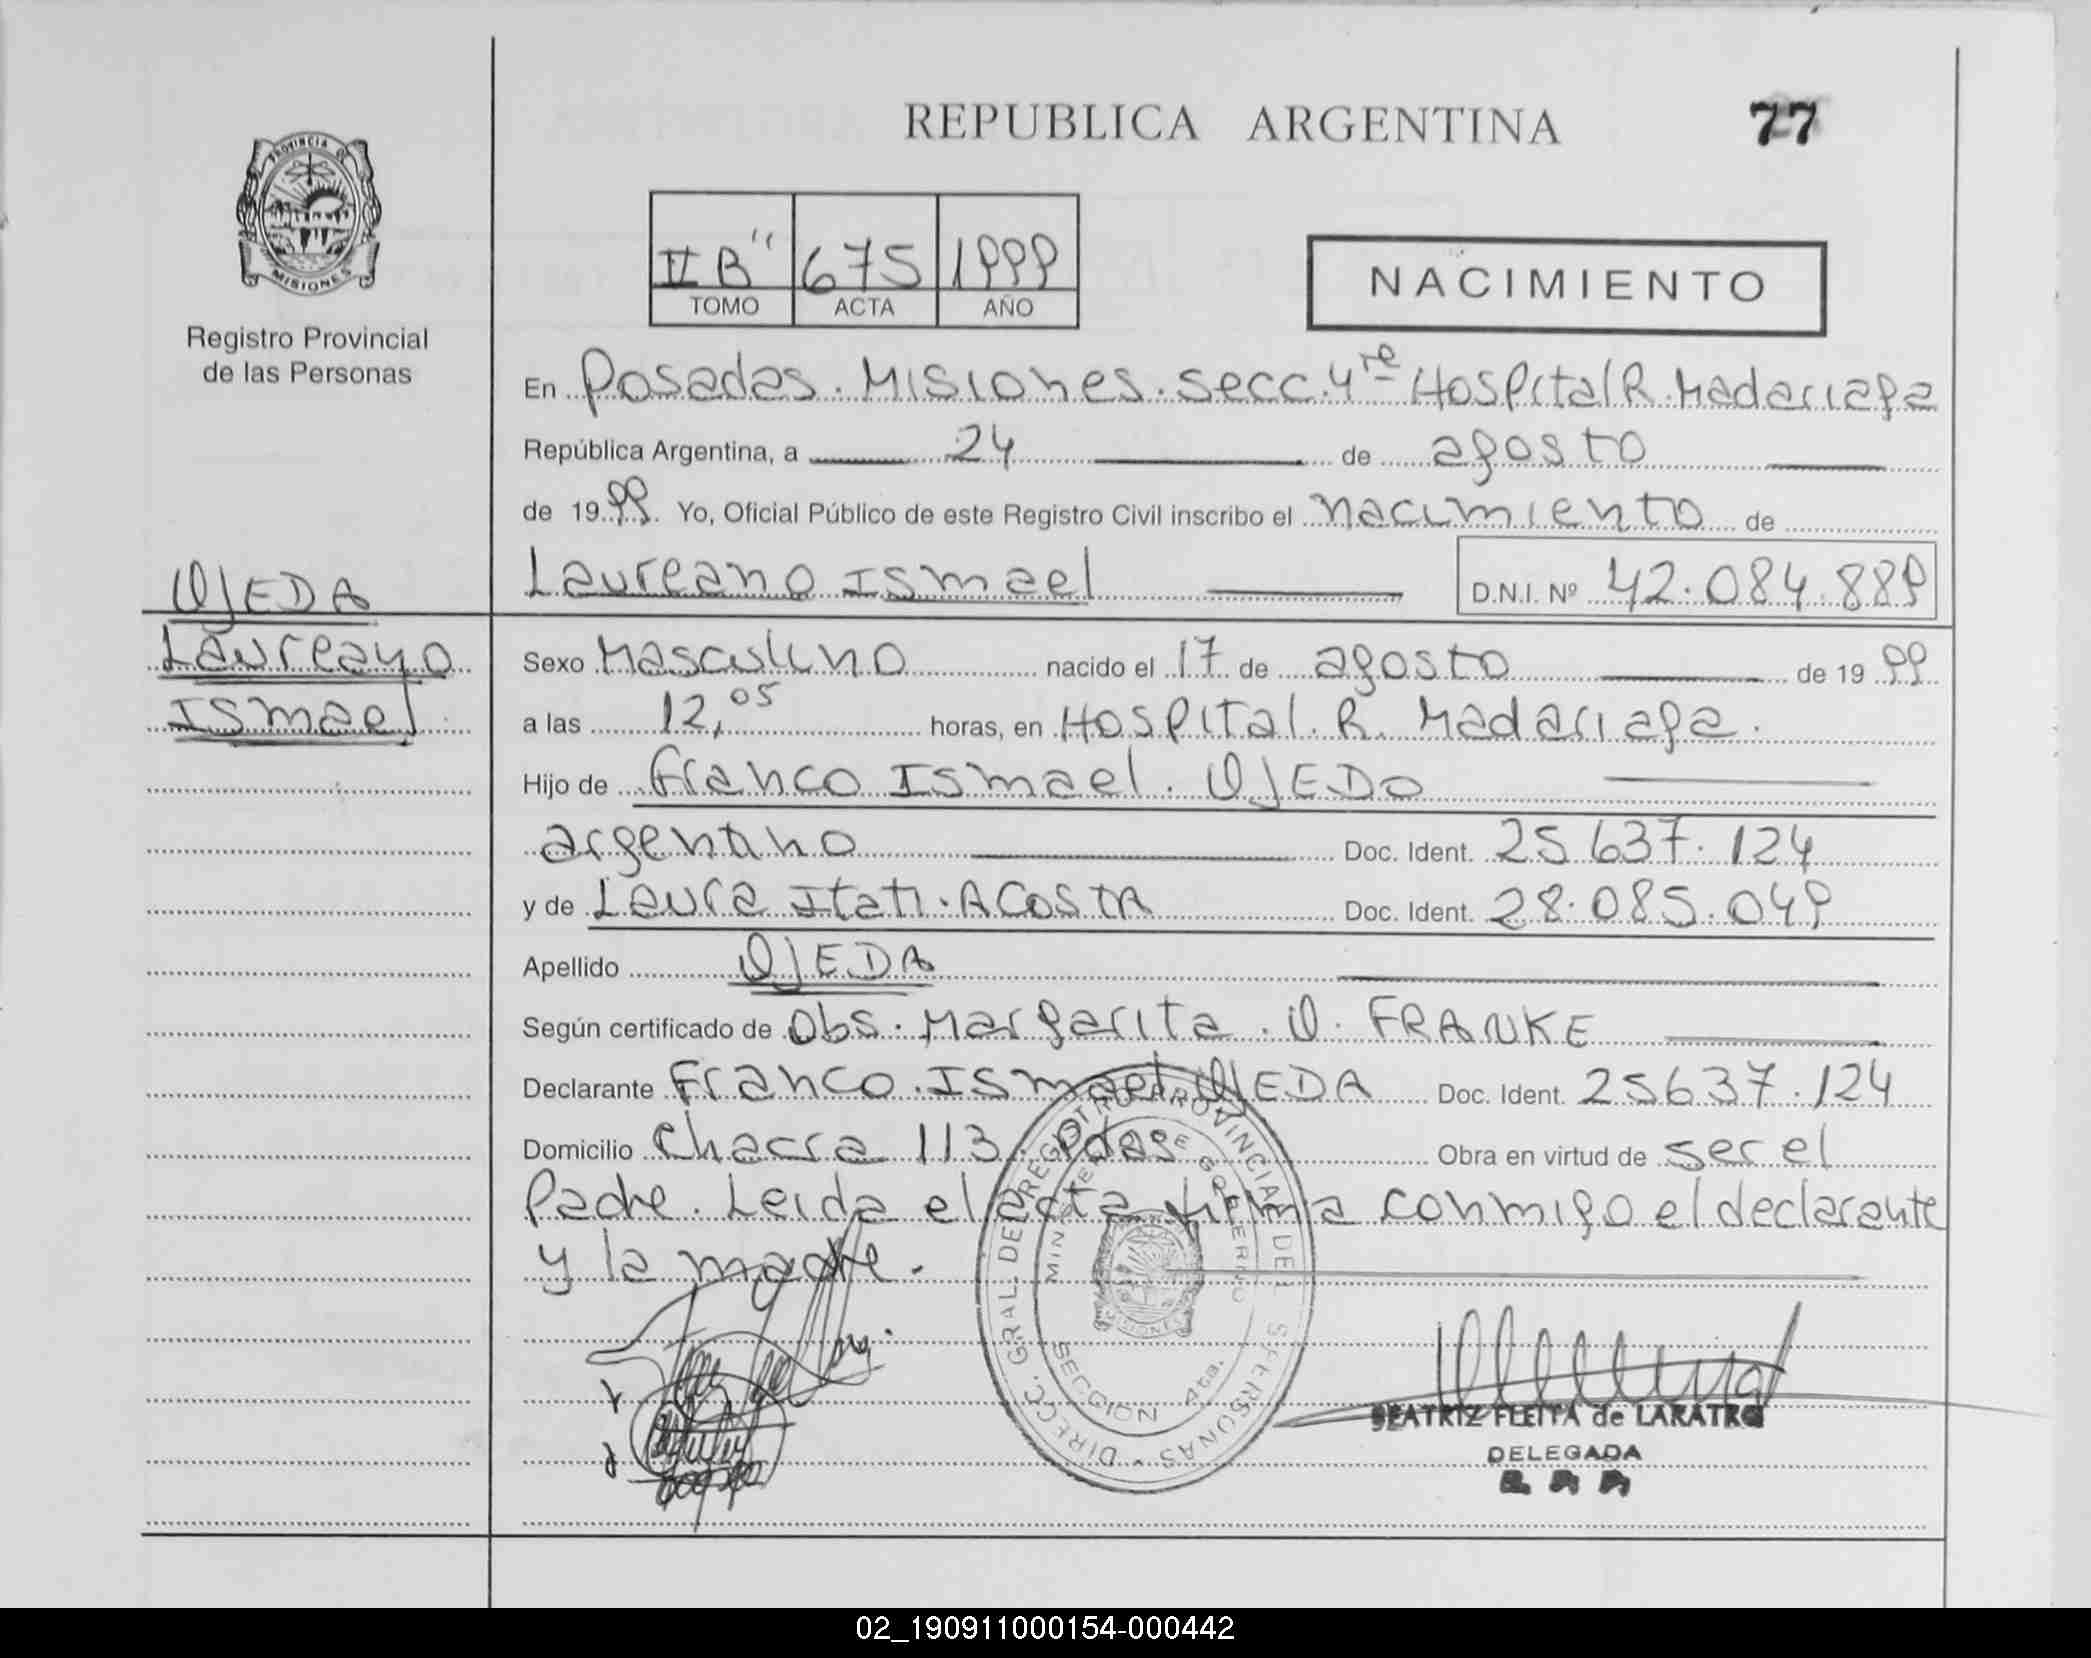 REPUBLICA ARGENTINA
77
PROVINCIA DE
MISIONES
Registro Provincial
de las Personas
II B" 675 1999
TOMO ACTA AÑO
NACIMIENTO
En Posadas. Misiones. secc. 4ta Hospital R. Madariaga
República Argentina, a 24 de agosto
de 1999. Yo, Oficial Público de este Registro Civil inscribo el nacimiento de
Laureano Ismael D.N.I. Nº 42.084.889
OJEDA
Laureano
Ismael
Sexo Masculino nacido el 17 de agosto de 1999
a las 12,05 horas, en Hospital. R. Madariaga.
Hijo de Franco Ismael. OJEDA
argentino Doc. Ident. 25 637. 124
y de Laura Itati. ACOSTA Doc. Ident. 28.085.049
Apellido OJEDA
Según certificado de Obs. Margarita. O. FRANKE
Declarante Franco. Ismael OJEDA Doc. Ident. 25637.124
Domicilio Chacra 113. Pdas Obra en virtud de ser el
Padre. Leida el acta firma conmigo el declarante
y la madre.
DIRECC. GRAL. DEL REGISTRO PROVINCIAL DE LAS PERSONAS
MINISTERIO DE GOBIERNO
MISIONES
SECCION 4ta.
BEATRIZ FLEITA de LARATRO
DELEGADA
02_190911000154-000442